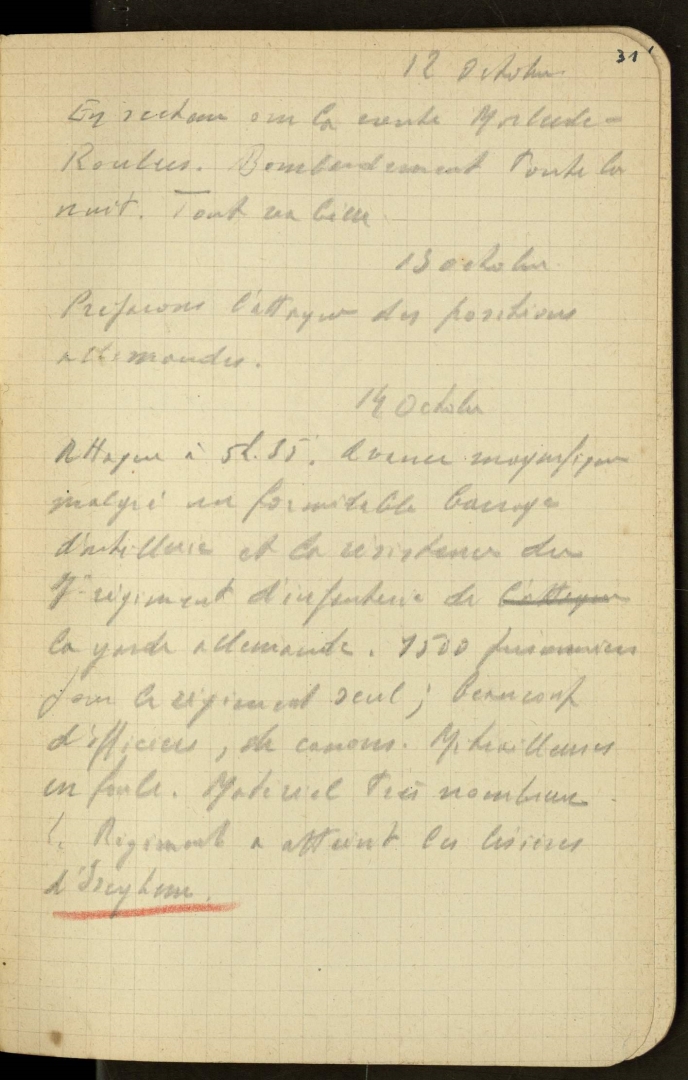 31
12 Octobre
En secteur sur la route
Roulers. Bombardement toute la
nuit. Tout va bien
13 octobre
Préparons l'attaque des positions
allemandes.
14 Octobre
Attaque à 5h.35. Avance magnifique
malgré un formidable barrage
d'artillerie et la résistance du
régiment d'infanterie de l'attaque
la garde allemande. 1500 prisonniers
pour le régiment seul ; beaucoup
d'officiers, de canons. Mitrailleuses
en foule. Matériel très nombreux
Le Régiment a atteint les lisières
d'Iseghem.